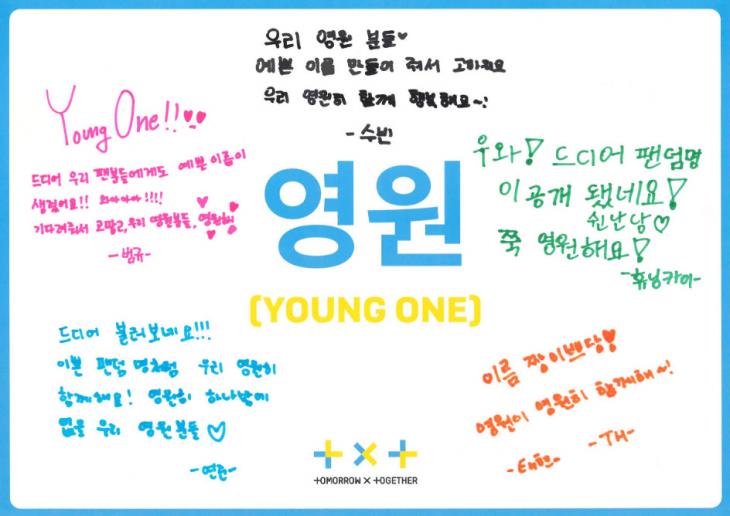 우리 영원 분들♡
예쁜 이름 만들어 줘서 고마워요
우리 영원히 함께 행복해요~!
-수빈
Young One!!♡♡
드디어 우리 팬분들에게도 예쁜이름이
생겼어요!! 와아아아!!!!
기다려줘서 고맙고, 우리 영원분들, 영원해♡
-범규-
우와! 드디어 팬덤명
이 공개 됐네요!
쉰난당♡
쭉 영원해요!
-휴닝카이-
영원
(YOUNG ONE)
드디어 불러보네요!!!
이쁜 팬덤 명처럼 우리 영원히
함께해요! 영원히 하나밖에
없을 우리 영원분들♡
-연준-
이름 짱이쁘당!
영원이 영원히 함께해~!
-태현- -TH-
TOMORROW X TOGETHER